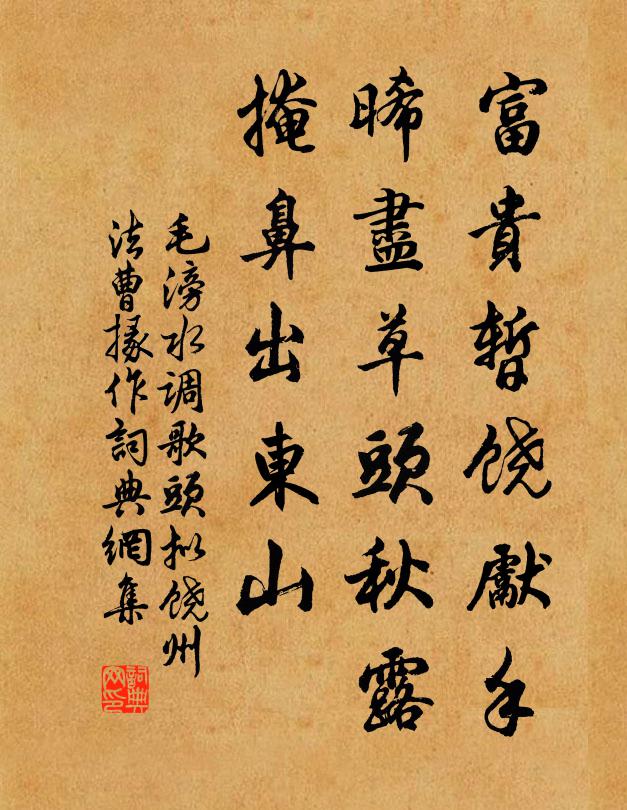 富貴暫饶獻手
晞盡草頭秋露
掩鼻出東山
毛滂水调歌頭拟饶州
法曹掾作詞典網集
詞典网印